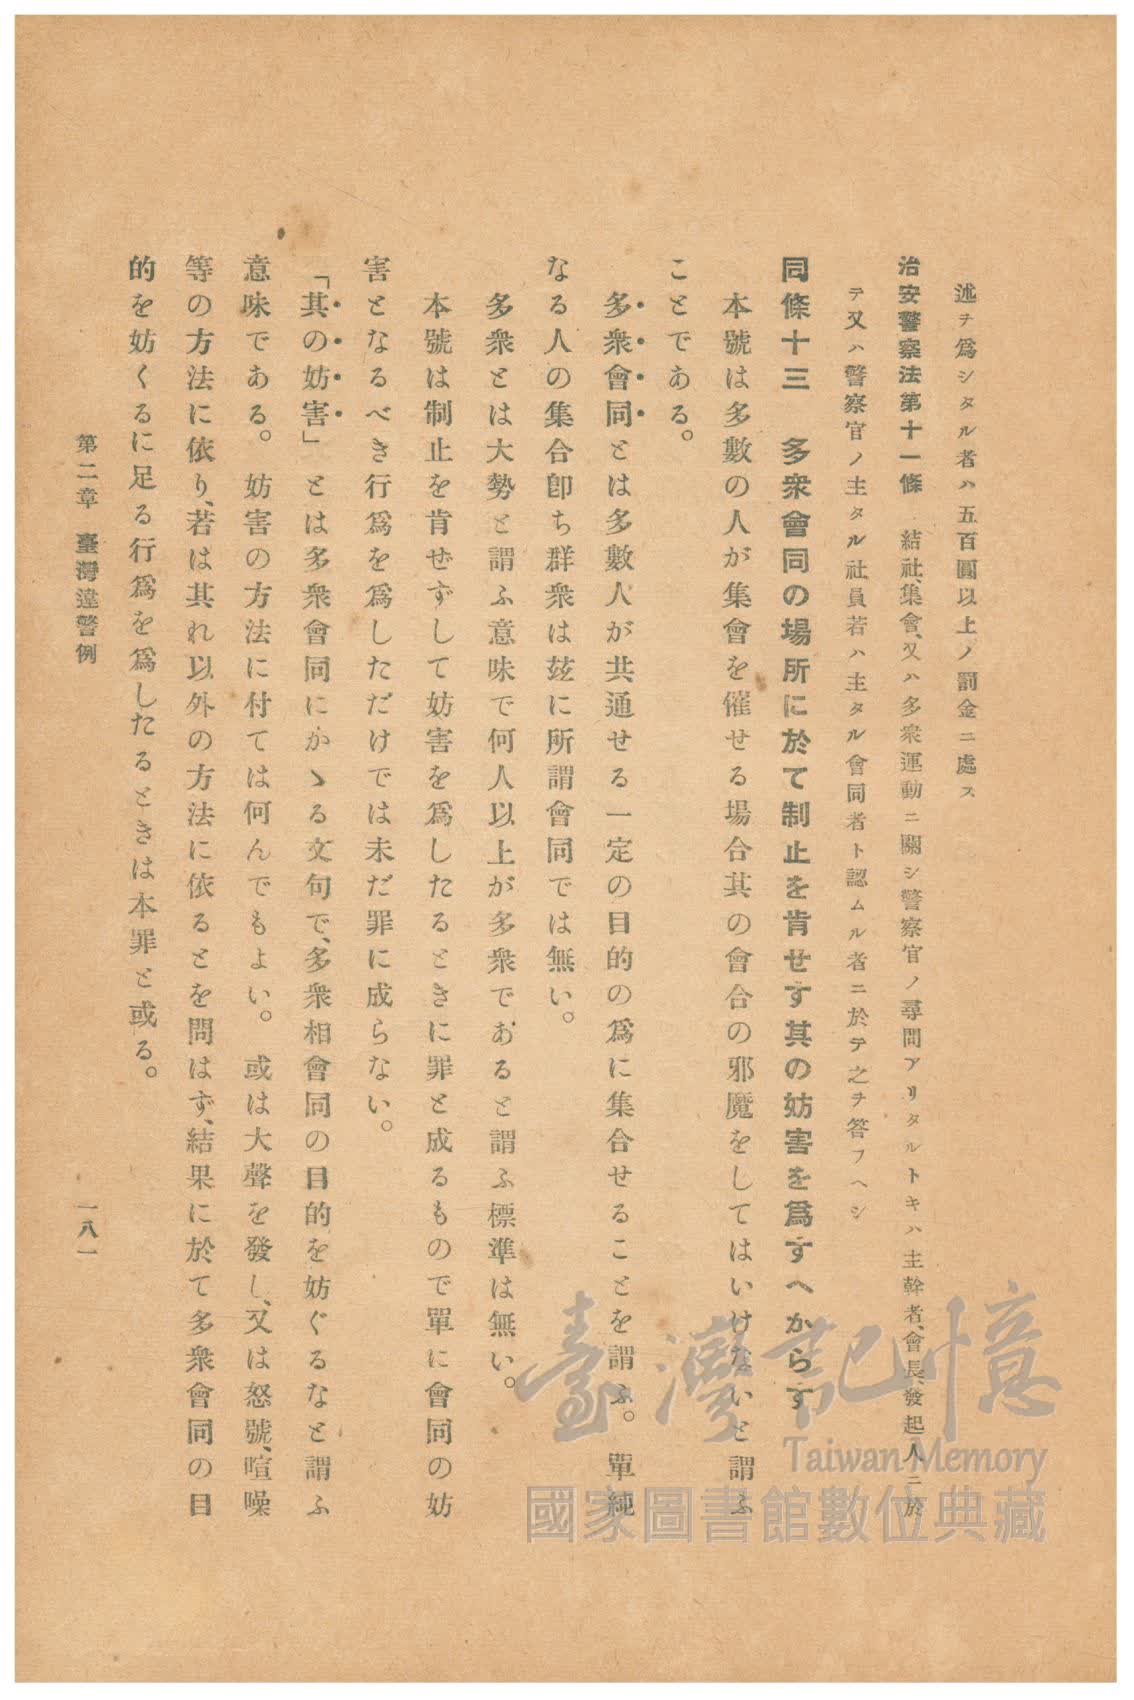 述ヲ爲シタル者ハ五百圓以上ノ罰金ニ處ス
治安警察法第十一條　結社、集會、又ハ多衆運動ニ關シ警察官ノ尋問アリタルトキハ主幹者、會長、發起人ニ於
テ又ハ警察官ノ主タル社員若ハ主タル會同者ト認ムル者ニ於テ之ヲ答フヘシ
同條十三　多衆會同の場所に於て制止を肯せす其の妨害を爲すへからす
本號は多數の人が集會を催せる場合其の會合の邪魔をしてはいけないと謂ふ
ことである。
多衆會同とは多數人が共通せる一定の目的の爲に集合せることを謂ふ。　單純
なる人の集合卽ち群衆は玆に所謂會同では無い。
多衆とは大勢と謂ふ意味で何人以上が多衆であると謂ふ標準は無い。
本號は制止を肯ぜずして妨害を爲したるときに罪と成るもので單に會同の妨
害となるべき行爲を爲しただけでは未だ罪に成らない。
「其の妨害」とは多衆會同にかゝる文句で、多衆相會同の目的を妨ぐるなと謂ふ
意味である。　妨害の方法に付ては何んでもよい。　或は大聲を發し、又は怒號、喧噪
等の方法に依り、若は其れ以外の方法に依るとを問はず、結果に於て多衆會同の目
的を妨くるに足る行爲を爲したるときは本罪と或る。
第二章　臺灣違警例
一八一
臺灣記憶
Taiwan Memory
國家圖書館數位典藏